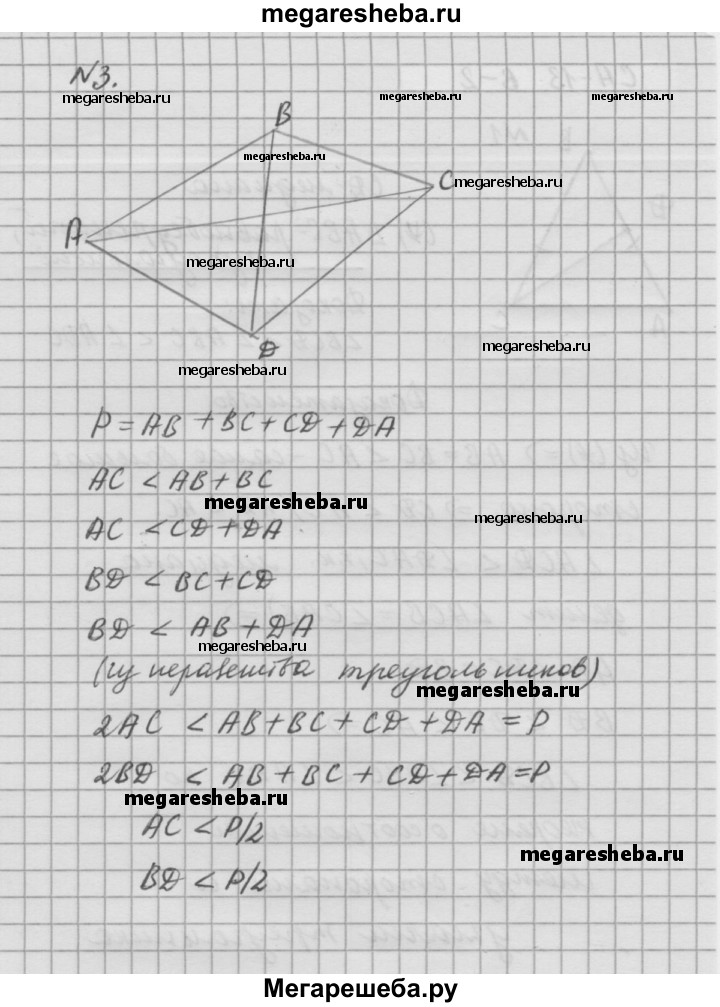 megaresheba.ru
N3.
megaresheba.ru megaresheba.ru megaresheba.ru
B
megaresheba.ru
C megaresheba.ru
A
megaresheba.ru
megaresheba.ru
D
megaresheba.ru
P = AB + BC + CD + DA
AC < AB + BC
megaresheba.ru
megaresheba.ru
AC < CD + DA
BD < BC + CD
BD < AB + DA
megaresheba.ru
(из неравенства треугольников)
megaresheba.ru
2AC < AB + BC + CD + DA = P
2BD < AB + BC + CD + DA = P
megaresheba.ru
AC < P/2
megaresheba.ru
BD < P/2
Мегарешеба.ру